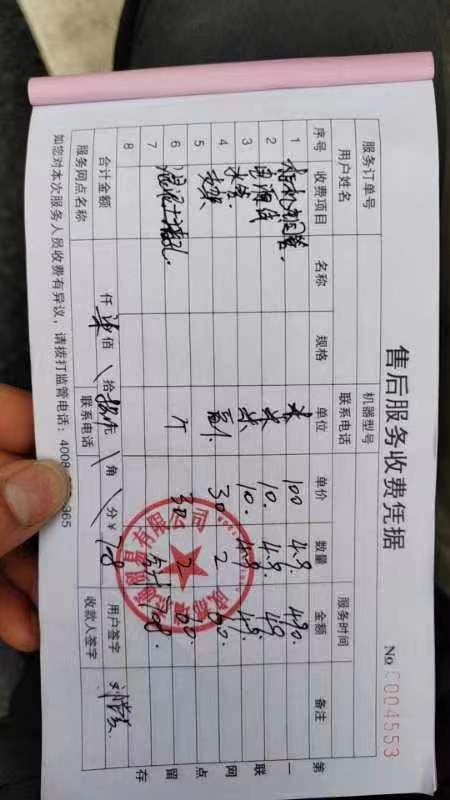 售后服务收费凭据
No 0004553
服务订单号 机器型号 服务时间
用户姓名 联系电话
序号 收费项目 名称 规格 单位 单价 数量 金额 备注
1 米 100 4.9 490.
2 电源线 米 10. 4.9 49
3 水管 米 10. 4.9 49
4 支架 副 30 2 60
5
6 混泥土 孔 个 30 2
7 合计 708.
8
合计金额 仟 柒 佰 拾 捌 元 角 分 ¥ 708
服务网点名称 联系电话 用户签字
收款人签字
如您对本次服务人员收费有异议，请拨打监管电话：4008 365
第一联 网点留存